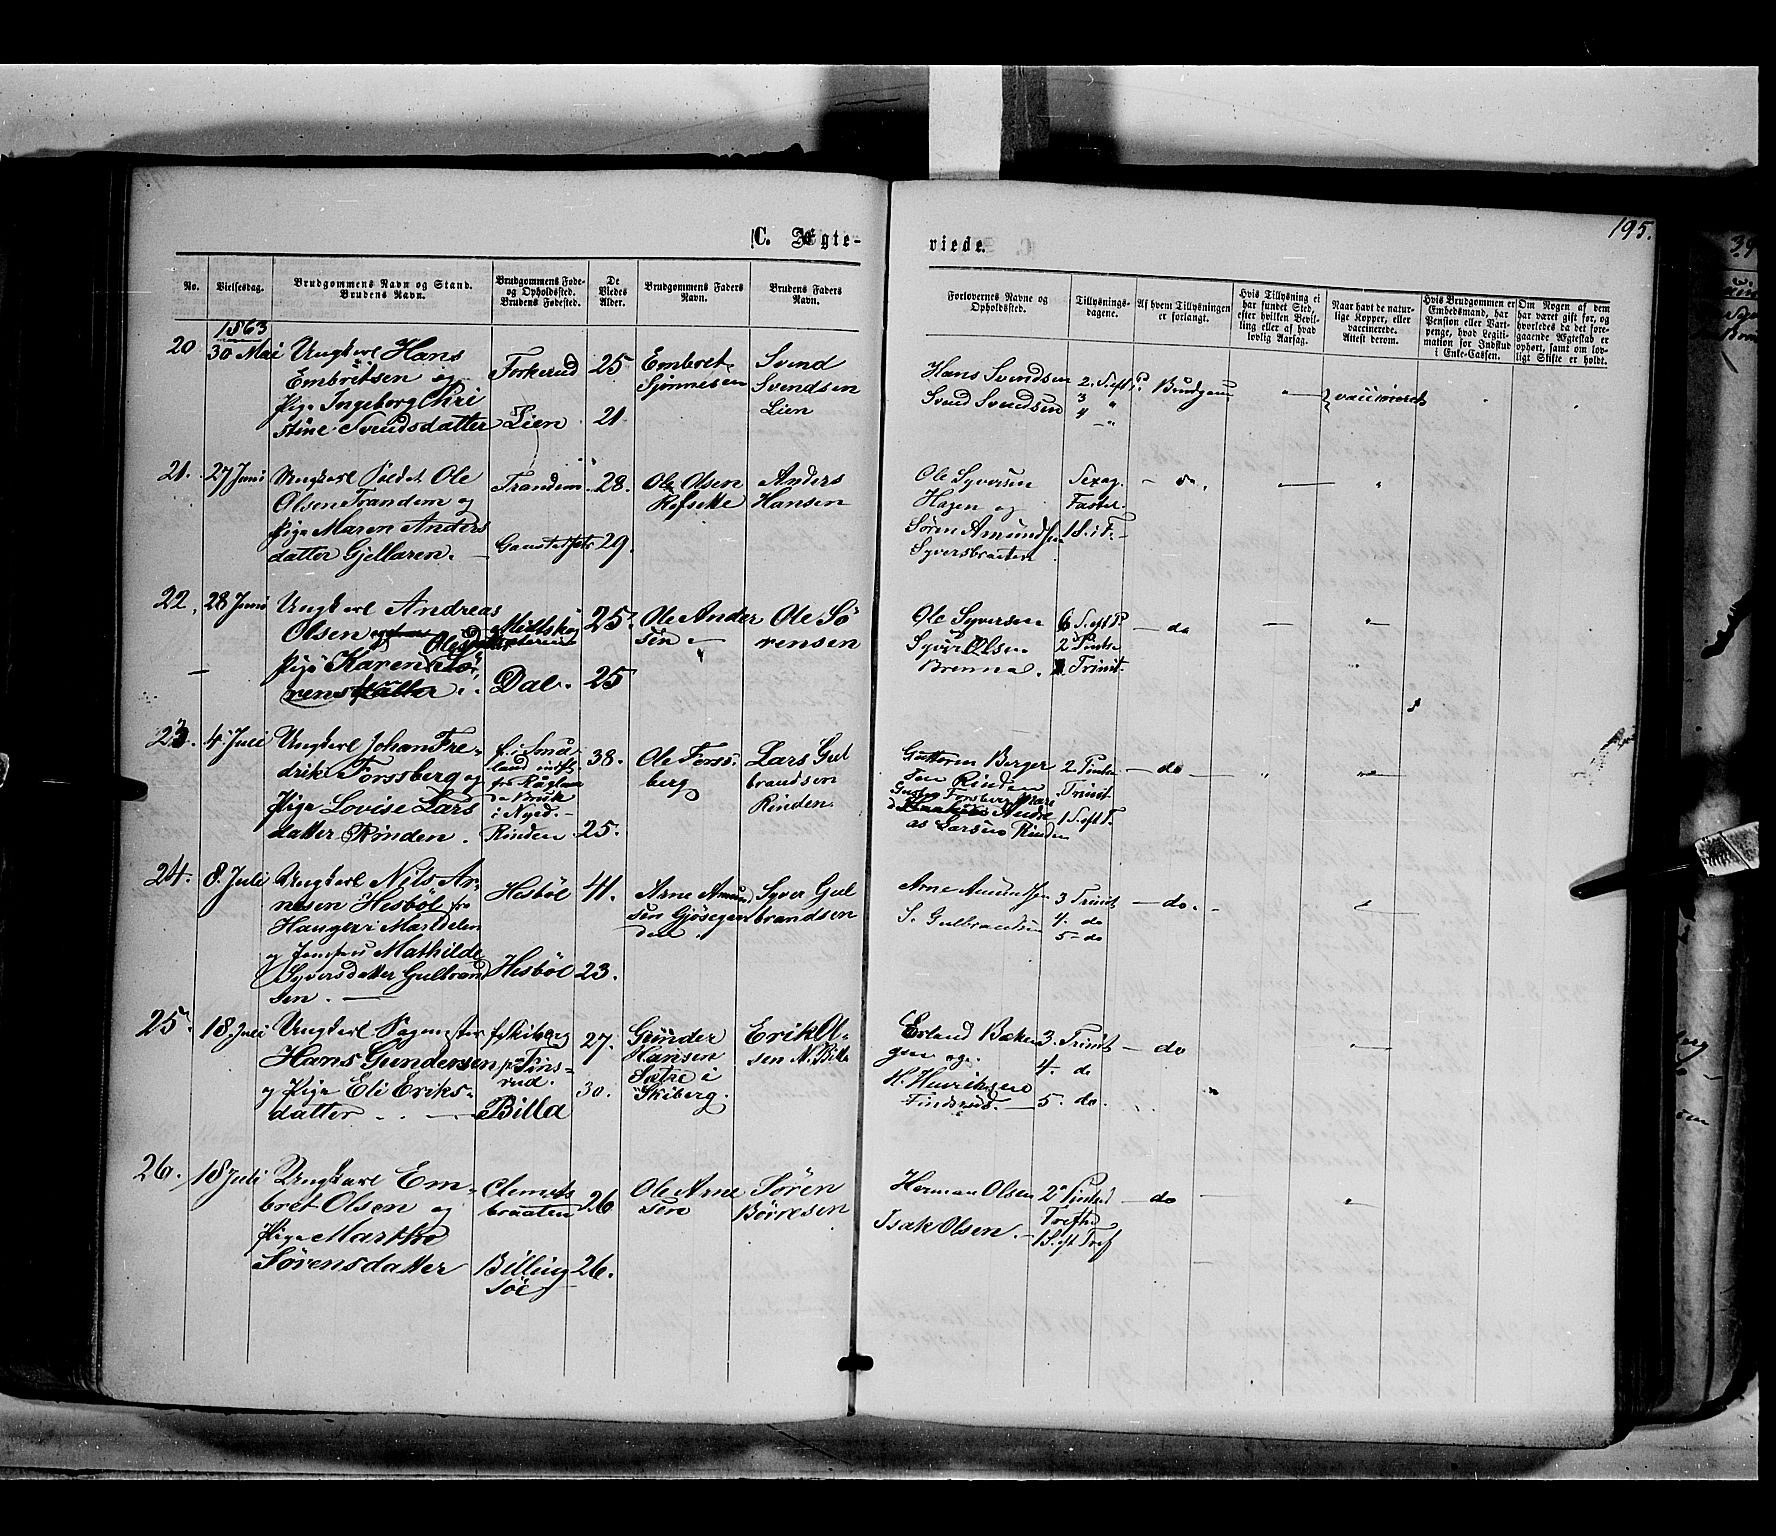 C. Ægte-
viede.
195.
No.
Vielsesdag.
Brudgommens Navn og Stand.
Brudens Navn.
Brudgommens Føde-
og Opholdssted.
Brudens Fødested.
De
Viedes
Alder.
Brudgommens Faders
Navn.
Brudens Faders
Navn.
Forlovernes Navne og
Opholdssted.
Tillysnings-
dagene.
Af hvem Tillysningen
er forlangt.
Hvis Tillysning ei
har fundet Sted,
efter hvilken Bevil-
ling eller af hvad
lovlig Aarsag.
Naar havt de natur-
lige Kopper, eller
vaccinerede.
Attest derom.
Hvis Brudgommen er
Embedsmand, har
Pension eller Vart-
penge, hvad Legiti-
mation for Indskud
i Enke-Cassen.
Om Nogen af dem
har været gift før, og
hvorledes da det fore-
gaaende Ægteskab er
ophørt, samt om lov-
ligt Skifte er holdt.
1863
20
30 Mai
Ungkarl Hans
Embretsen og
Pige Ingeborg Chri
stine Svendsdatter
Forkerud
Lien
25
21
Embret
Svend
Svendsen
Lien
Hans Svendsen
Svend Svendsen
2. S. eft P.
3 "
4 - "
Brudgom
vaccineret
21.
27 Juni
Ungkarl Soldat Ole
Olsen Trandem og
Pige Maren Anders
datter Gjellaren.
Trandem
28.
29.
Ole Olsen
Anders
Hansen
Ole Syversen
Hagen og
Søren Amundsen
Syversbraaten
Sexag.
Faster.
1 S. i F.
do
22.
28 Juni
Ungkarl Andreas
Olsen
Olesdatter
Pige Karen Sö
rensdatter
Dal.
25
25
Ole Ander
sen
Ole Sö
rensen
Ole Syversen
Syver Olsen
Brenna.
6 S. eft P.
2 Pintse
Trinit.
do
23.
4 Juli
Ungkarl Johan Fre-
drik Forssberg og
Pige Lovise Lars
datter Rinden.
f. i Smaa-
land indfl.
Bruk
i Nyed.
Rinden
38.
25.
Ole Forss-
berg
Lars Gul
brandsen
Rinden
Guttorm Berger
sen Rinden
Forsberg
Andre
as Larsen Rinden
2. Pintse
Trinit.
1 S. eft T.
do
24.
8. Juli
Ungkarl Nils Ar-
nesen Hesböl fra
Hanger i Marsdelen
og Jomfru Mathilde
Syversdatter Gulbrand
sen.
Hesböl
Hesböl
41.
23.
Arne Amund
sen Gjösegaar
den
Syver Gul
brandsen
Arne Amundsen
S. Gulbrandsen
3 Trinit
4. do
5 - do
do.
25.
18. Juli
Ungkarl
Hans Gundersen
og Pige Eli Eriks-
datter
f. Skiberg
p. Tins-
rud.
Billa
27.
30.
Gunder
Hansen
Sætre i
Skiberg.
Erik Ol-
sen N. Billa
Erland Baken
gen og
H. Henriksen
Tindsrud.
3. Trinit
4. do
5. do.
do
26.
18 Juli
Ungkarl Em-
bret Olsen og
Pige Marthe
Sørensdatter
Clemets
braaten
Billing
söe
26
26.
Ole Arne
sen
Sören
Börresen
Herman Olsen
Isak Olsen.
2 Pintsed
Trefld
1 S. eft Tref
do